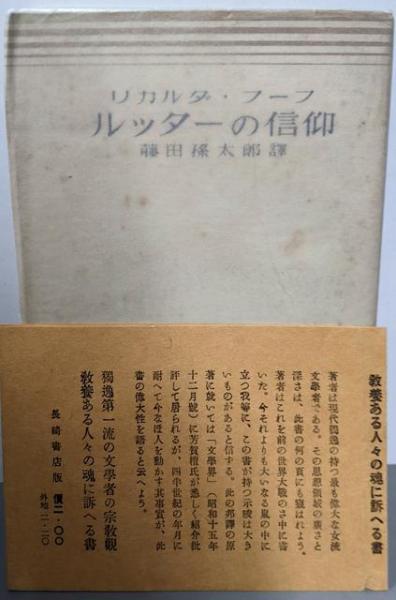 リカルダ・フーフ
ルッターの信仰
藤田孫太郎譯
敎養ある人々の魂に訴へる書
著者は現代獨逸の持つ最も偉大な女流
文學者である。その思想領域の廣さと
深さは、此書の何の頁にも窺はれよう。
著者はこれを前の世界大戰のさ中に書
いた。今それよりも大いなる嵐の中に
立つ我等に、この書が持つ示唆は大き
いものがあると信ずる。此の邦譯の原
著に就いては「文學界」(昭和十五年
十二月號)に芳賀檀氏が悉しく紹介批
評して居られるが、四半世紀の年月に
耐へて今なほ人を動かす其事實が、此
書の偉大性を語ると云へよう。
獨逸第一流の文學者の宗敎觀
敎養ある人々の魂に訴へる書
長崎書店版 價二・〇〇
外地二・二〇